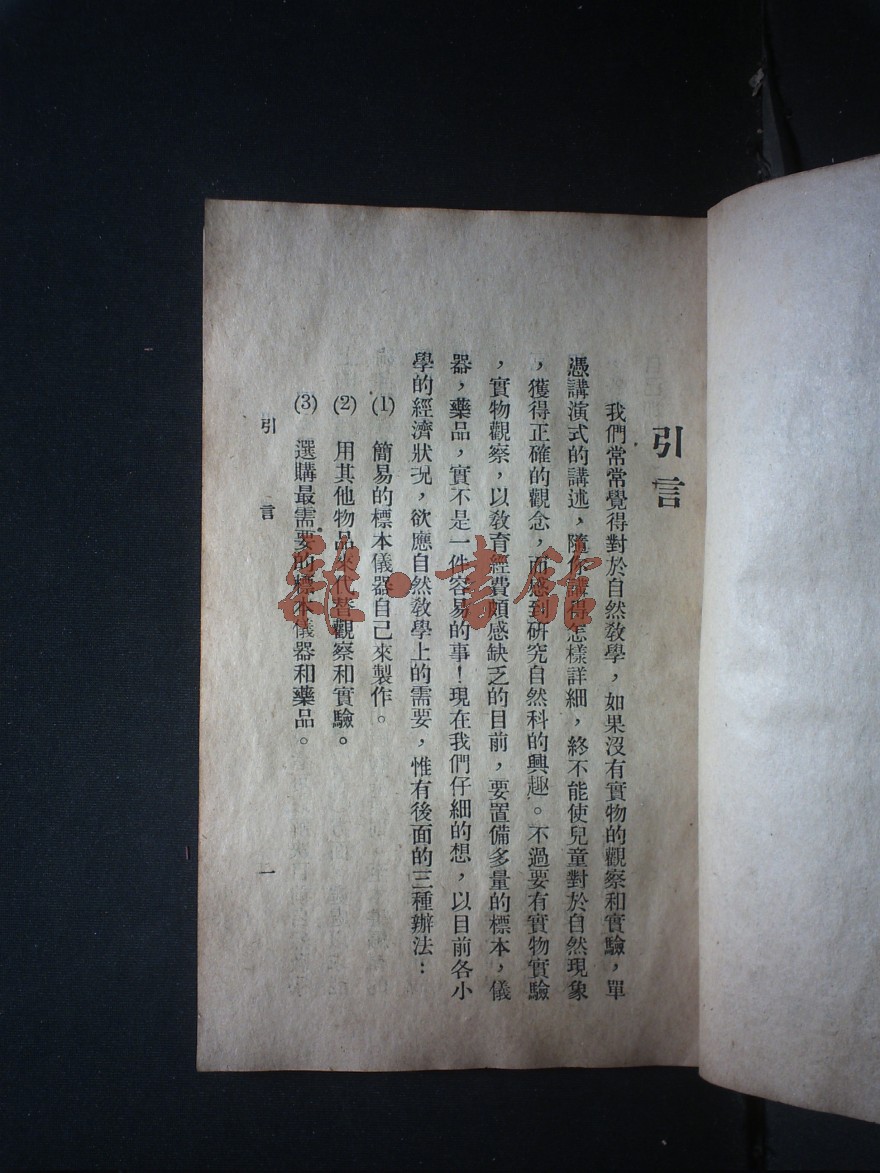 引言
我們常常覺得對於自然教學，如果沒有實物的觀察和實驗，單
憑講演式的講述，隨你講得怎樣詳細，終不能使兒童對於自然現象
，獲得正確的觀念，而感到研究自然科的興趣。不過要有實物實驗
，實物觀察，以教育經費頗感缺乏的目前，要置備多量的標本，儀
器，藥品，實不是一件容易的事！現在我們仔細的想，以目前各小
學的經濟狀況，欲應自然教學上的需要，惟有後面的三種辦法：
(1) 簡易的標本儀器自己來製作。
(2) 用其他物品來代替觀察和實驗。
(3) 選購最需要的標本儀器和藥品。
引言 一
雜·書館